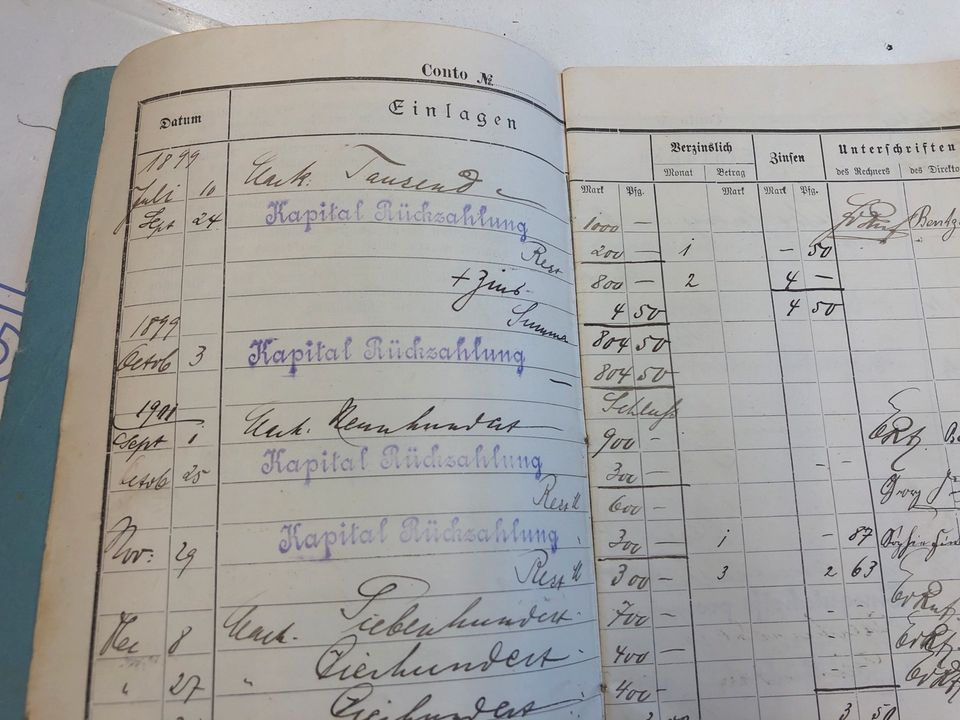 Conto №
Datum Einlagen Verzinslich Zinsen Unterschriften
Monat Betrag des Rechners des Direkto
Mark Pfg. Mark Mark Pfg.
1899
Juli 10 Mark. Tausend 1000 —
Sept 24 Kapital Rückzahlung 200 — 1 — 50
Rest 800 — 2 4 —
+ Zins 4 50 4 50
Summa 804 50
1899
Octob 3 Kapital Rückzahlung 804 50
— Schluß
1901
Sept 1 Mark. Neunhundert 900 —
Octob 25 Kapital Rückzahlung 300 — - -
Rest M 600 — Georg
Nov: 29 Kapital Rückzahlung 300 — 1 — 87 Sophie
Rest M 300 — 3 2 63
8 Mark. Siebenhundert 700 —
" 27 " Vierhundert 400 —
Vierhundert 400 —
3 50